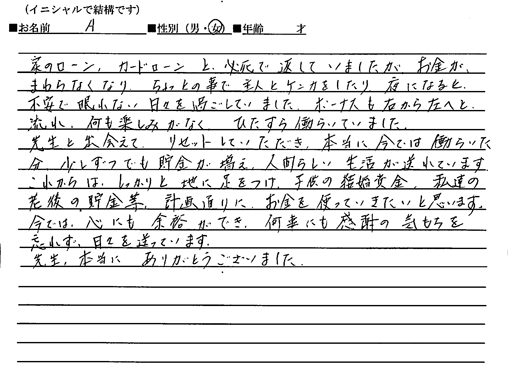 (イニシャルで結構です)
■お名前 A ■性別(男・女)■年齢 才
家のローン、カードローンと、必死で返していましたが、お金が、
まわらなくなり、ちょっとの事で主人とケンカをしたり、夜になると、
不安で眠れない日々を過ごしていました。ボーナスも右から左へと、
流れ、何も楽しみがなく、ひたすら働らいていました。
先生と出会えて、リセットしていただき、本当に今では働らいた
分、少しずつでも貯金が増え、人間らしい生活が送れています
これからは、しっかりと地に足をつけ、子供の結婚資金、私達の
老後の貯金等、計画通りに、お金を使っていきたいと思います。
今では、心にも余裕ができ、何事にも感謝の気もちを
忘れず、日々を送っています。
先生、本当に ありがとうございました。